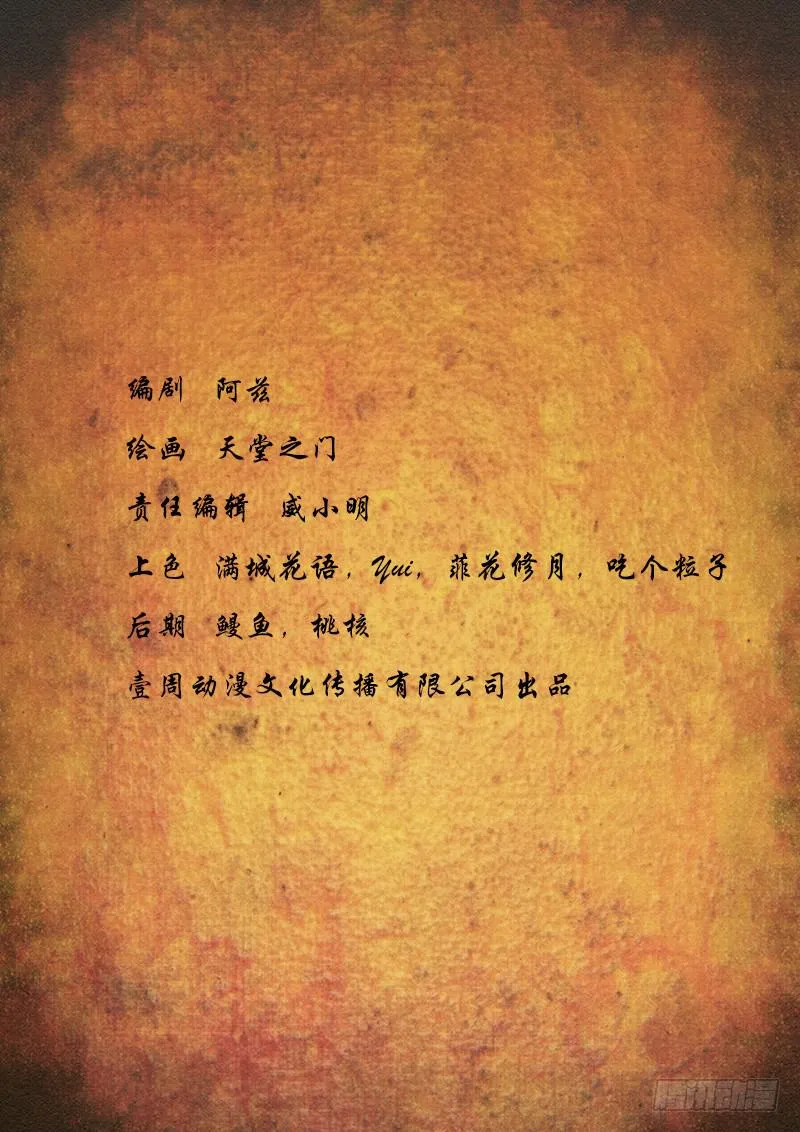 编剧 阿兹
绘画 天堂之门
责任编辑 威小明
上色 满城花语，Yui，菲花修月，吃个粒子
后期 鳗鱼，桃核
壹周动漫文化传播有限公司出品